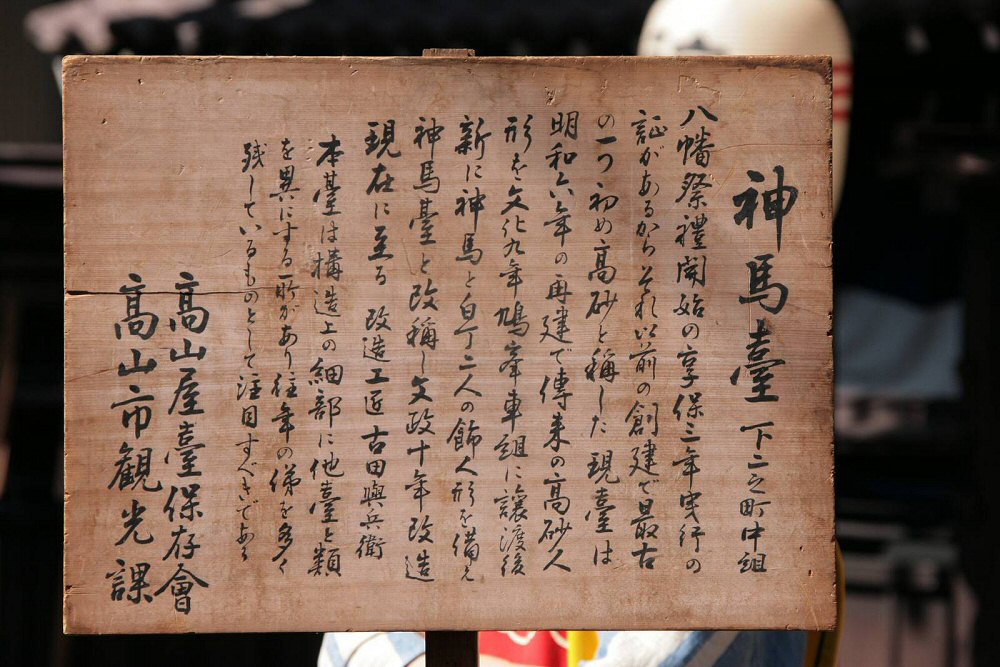 神馬臺 下二之町中組
八幡祭禮開始の享保三年曳行の
証があるからそれ以前の創建で最古
の一つ初め高砂と稱した 現臺は
明和六年の再建で傳来の高砂人
形を文化九年鳩峯車組に譲渡後
新に神馬と白丁二人の飾人形を備え
神馬臺と改稱し文政十年改造
現在に至る 改造工匠 古田與兵衛
本臺は構造上の細部に他臺と類
を異にする所があり往年の俤を多く
残しているものとして注目すべきである
高山屋臺保存會
高山市観光課